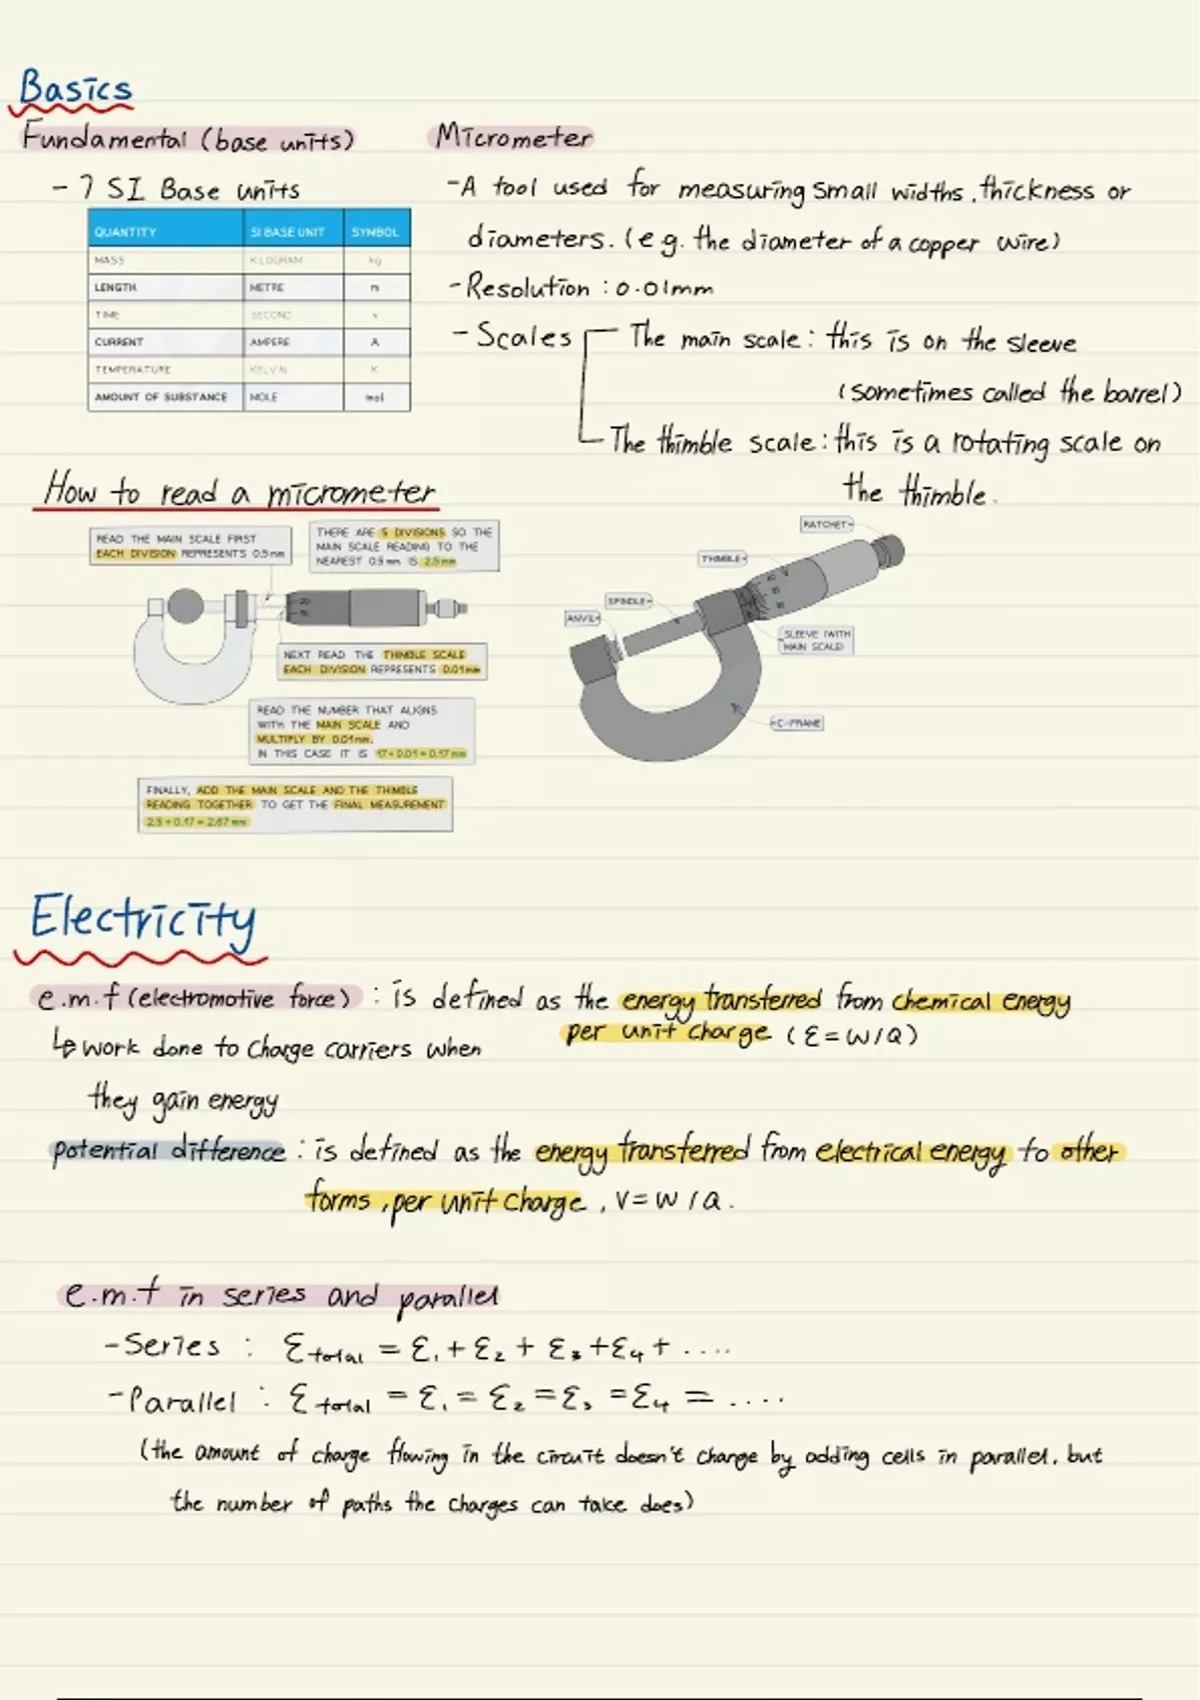 Basics
Fundamental (base units)
- 7 SI Base units
QUANTITY SI BASE UNIT SYMBOL
MASS KILOGRAM kg
LENGTH METRE m
TIME SECOND s
CURRENT AMPERE A
TEMPERATURE KELVIN K
AMOUNT OF SUBSTANCE MOLE mol
Micrometer
- A tool used for measuring small widths, thickness or
diameters. (e.g. the diameter of a copper wire)
- Resolution : 0.01mm
- Scales
The main scale : this is on the sleeve
(sometimes called the barrel)
The thimble scale : this is a rotating scale on
the thimble.
How to read a micrometer
READ THE MAIN SCALE FIRST
EACH DIVISION REPRESENTS 0.5 mm
THERE ARE 5 DIVISIONS SO THE
MAIN SCALE READING TO THE
NEAREST 0.5 mm IS 2.5 mm
20
15
NEXT READ THE THIMBLE SCALE
EACH DIVISION REPRESENTS 0.01 mm
READ THE NUMBER THAT ALIGNS
WITH THE MAIN SCALE AND
MULTIPLY BY 0.01 mm.
IN THIS CASE IT IS 17 × 0.01 = 0.17 mm
FINALLY, ADD THE MAIN SCALE AND THE THIMBLE
READING TOGETHER TO GET THE FINAL MEASUREMENT
2.5 + 0.17 = 2.67 mm
RATCHET
THIMBLE
SPINDLE
ANVIL
SLEEVE (WITH
MAIN SCALE)
C-FRAME
Electricity
e.m.f (electromotive force) : is defined as the energy transferred from chemical energy
per unit charge (ε = W/Q)
↳ work done to charge carriers when
they gain energy
potential difference : is defined as the energy transferred from electrical energy to other
forms, per unit charge, V = W/Q.
e.m.f in series and parallel
- Series : ε total = ε₁ + ε₂ + ε₃ + ε₄ + ....
- Parallel : ε total = ε₁ = ε₂ = ε₃ = ε₄ = ....
(the amount of charge flowing in the circuit doesn't change by adding cells in parallel, but
the number of paths the charges can take does)